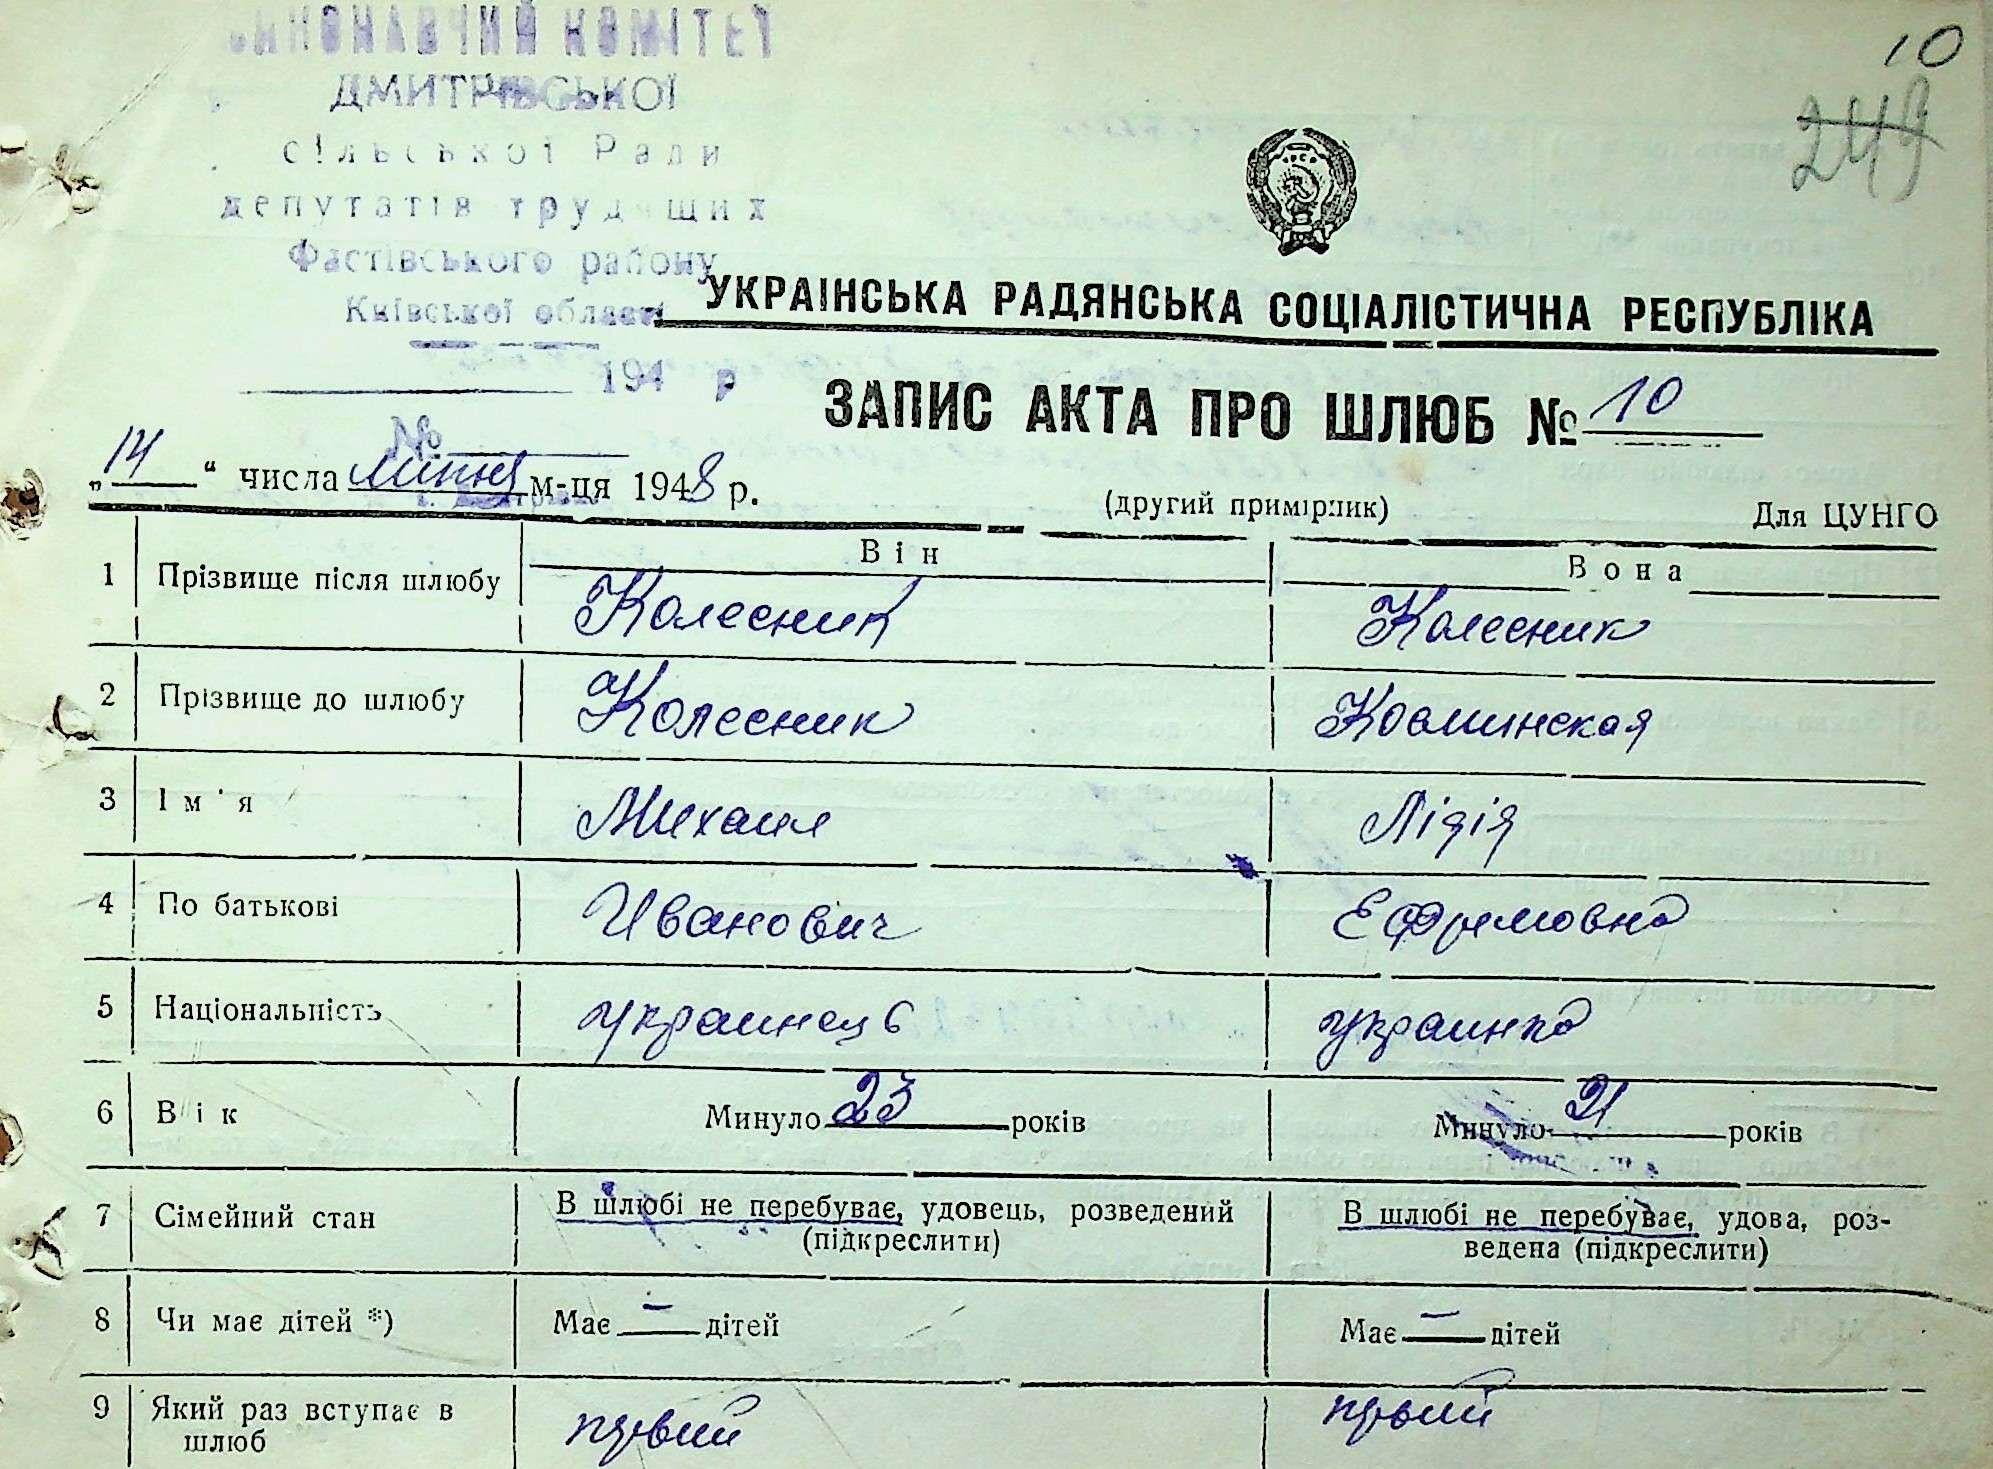 ВИКОНАВЧИЙ КОМІТЕТ
ДМИТРІВСЬКОЇ
сільської Ради
депутатів трудящих
Фастівського району
Київської області
194 р
№
10
249
УКРАІНСЬКА РАДЯНСЬКА СОЦІАЛІСТИЧНА РЕСПУБЛІКА
ЗАПИС АКТА ПРО ШЛЮБ № 10
„14“ числа липня м-ця 1948 р.
(другий примірник)
Для ЦУНГО
Він Вона
1 Прізвище після шлюбу Колесник Колесник
2 Прізвище до шлюбу Колесник Косминская
3 Ім'я Михаил Лідія
4 По батькові Иванович Ефремовна
5 Національність украинець украинка
6 Вік Минуло 23 років Минуло 21 років
7 Сімейний стан В шлюбі не перебуває, удовець, розведений В шлюбі не перебуває, удова, роз-
(підкреслити) ведена (підкреслити)
8 Чи має дітей *) Має — дітей Має — дітей
9 Який раз вступає в первий первий
шлюб